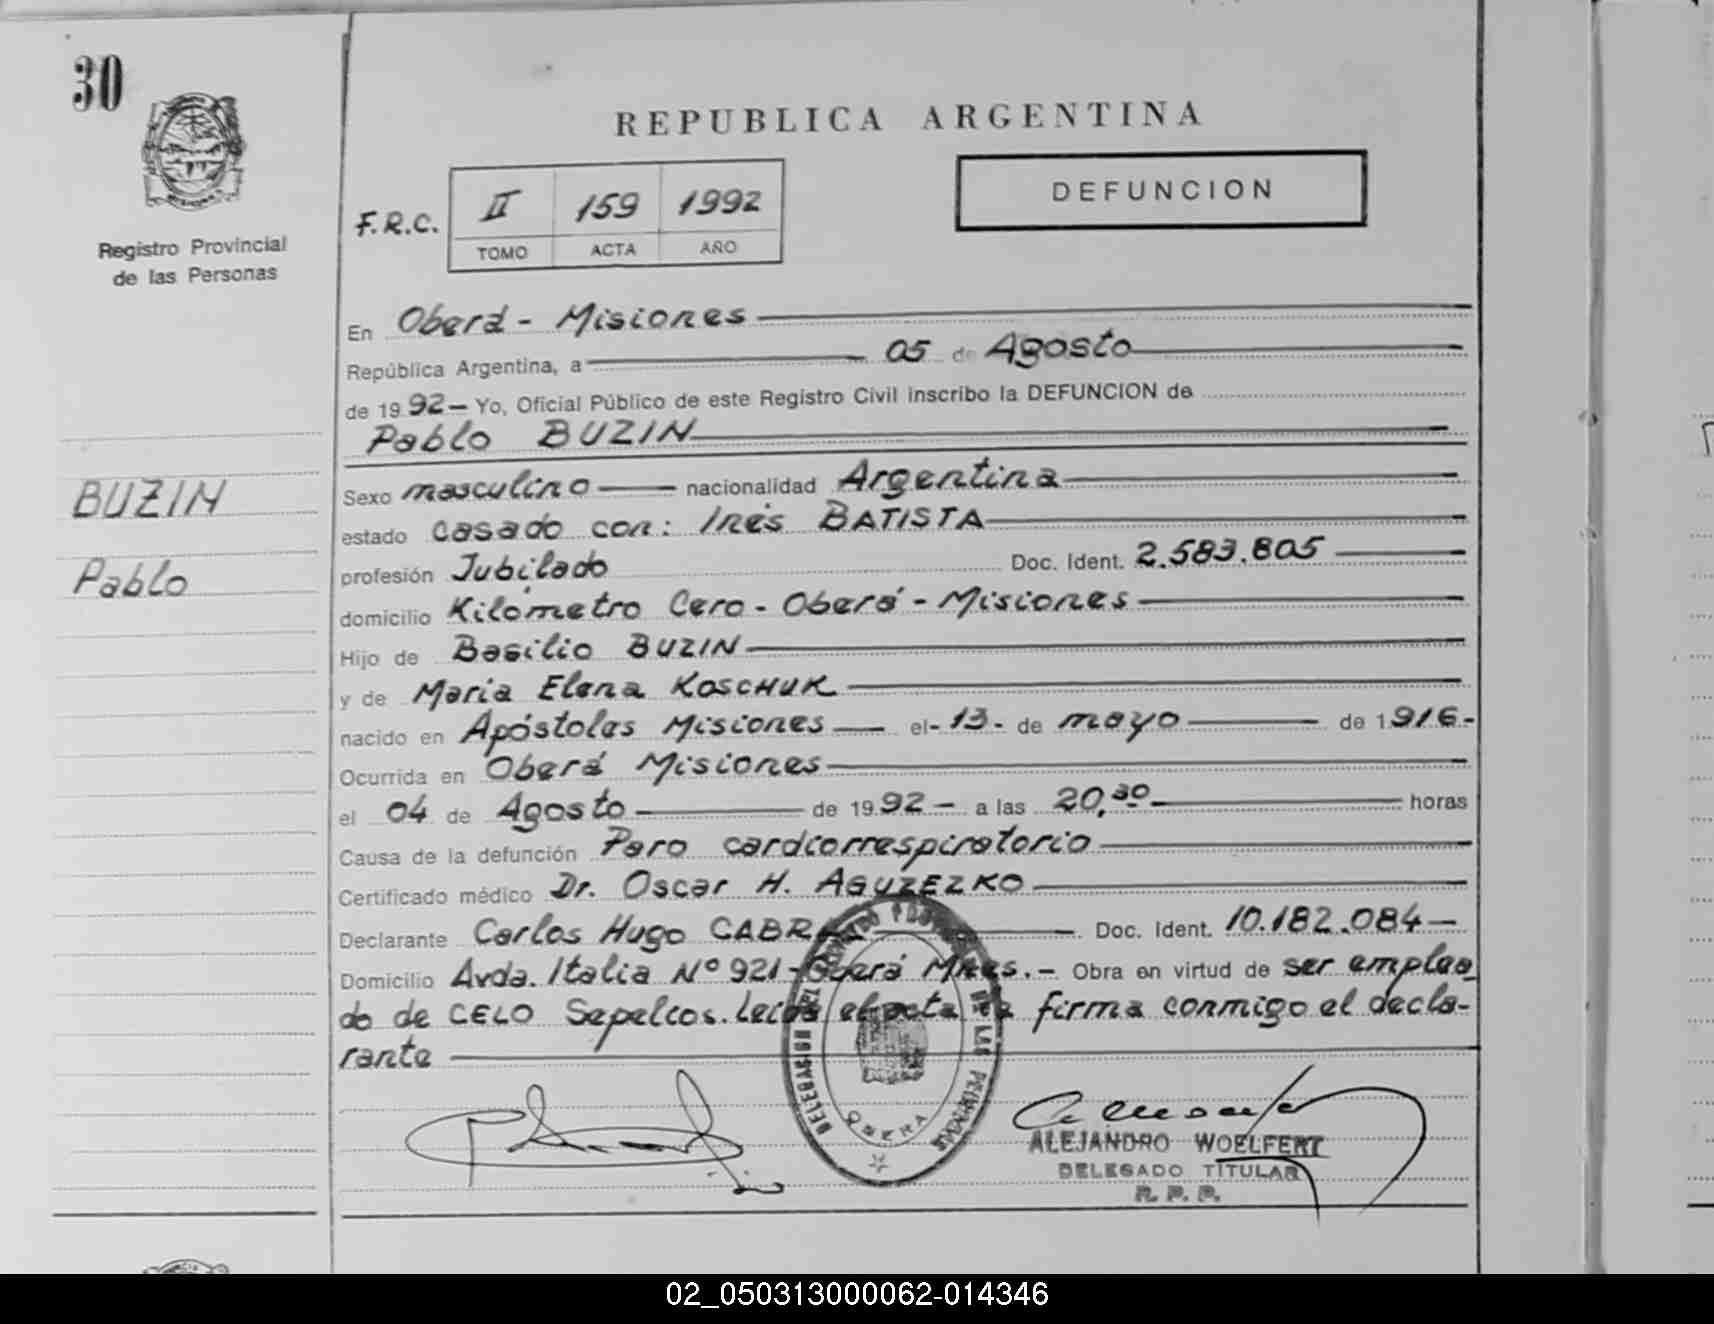 30
REPUBLICA ARGENTINA
Registro Provincial
de las Personas
F.R.C. II 159 1992
TOMO ACTA AÑO
DEFUNCION
En Oberá - Misiones
República Argentina, a 05 de Agosto
de 1992 - Yo, Oficial Público de este Registro Civil inscribo la DEFUNCION de
Pablo BUZIN
BUZIN
Pablo
Sexo masculino nacionalidad Argentina
estado casado con: Inés BATISTA
profesión Jubilado Doc. Ident. 2.583.805
domicilio Kilómetro Cero - Oberá - Misiones
Hijo de Basilio BUZIN
y de Maria Elena KOSCHUK
nacido en Apóstoles Misiones el - 13 - de mayo de 1916 -
Ocurrida en Oberá Misiones
el 04 de Agosto de 1992 - a las 20,30 horas
Causa de la defunción Paro cardiorrespiratorio
Certificado médico Dr. Oscar H. AGUZEZKO
Declarante Carlos Hugo CABRAL Doc. Ident. 10.182.084 -
Domicilio Avda. Italia Nº 921 - Oberá Mnes. - Obra en virtud de ser emplea
do de CELO Sepelios. Leida el acta la firma conmigo el decla-
rante
OBERA
ALEJANDRO WOELFERT
DELEGADO TITULAR
R. P. P.
02_050313000062-014346